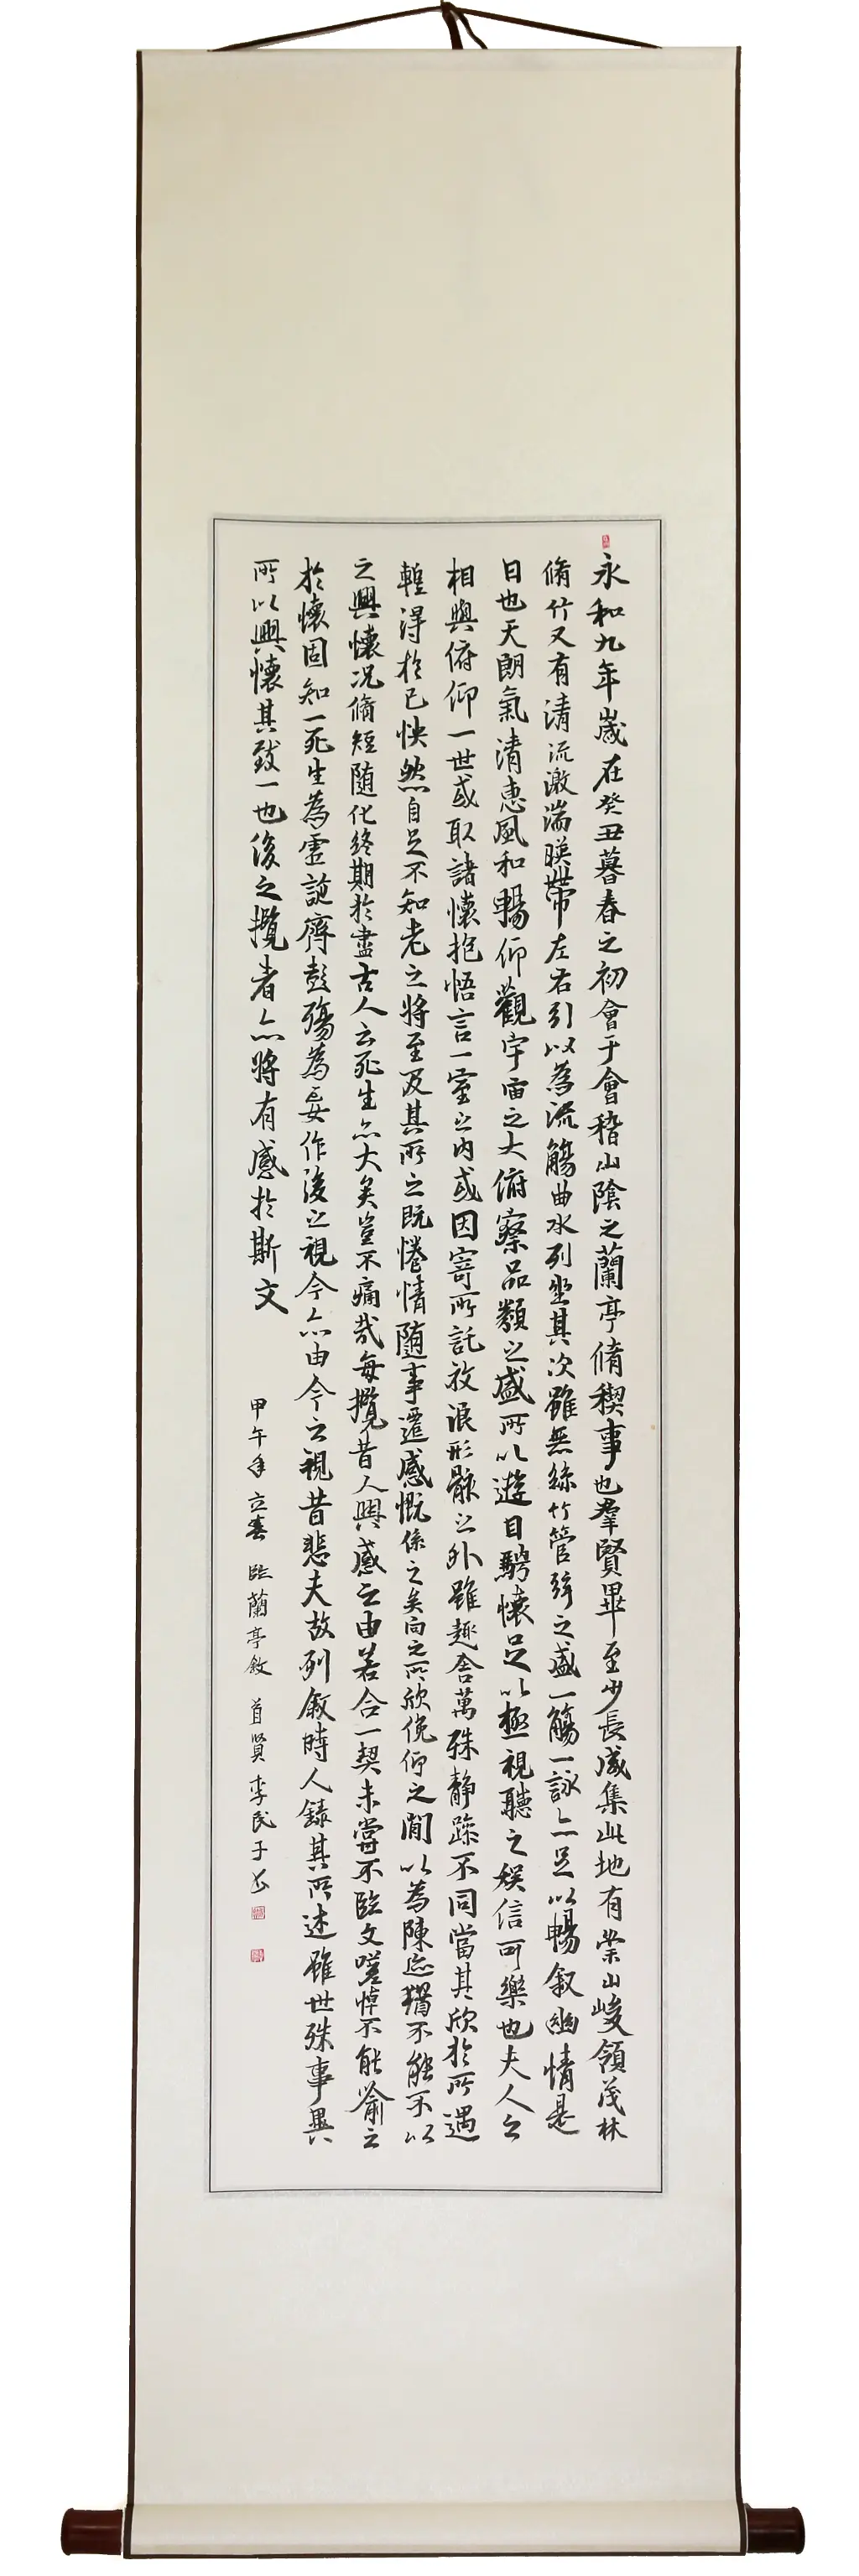 永和九年歲在癸丑暮春之初會于會稽山陰之蘭亭脩稧事也羣賢畢至少長咸集此地有崇山峻領茂林
脩竹又有清流激湍暎帶左右引以為流觴曲水列坐其次雖無絲竹管弦之盛一觴一詠亦足以暢叙幽情是
日也天朗氣清惠風和暢仰觀宇宙之大俯察品類之盛所以遊目騁懷足以極視聽之娛信可樂也夫人之
相與俯仰一世或取諸懷抱悟言一室之內或因寄所託放浪形骸之外雖趣舍萬殊靜躁不同當其欣於所遇
蹔得於己怏然自足不知老之將至及其所之既惓情隨事遷感慨係之矣向之所欣俛仰之閒以為陳迹猶不能不以
之興懷況脩短隨化終期於盡古人云死生亦大矣豈不痛哉每攬昔人興感之由若合一契未嘗不臨文嗟悼不能喻之
於懷固知一死生為虛誕齊彭殤為妄作後之視今亦由今之視昔悲夫故列叙時人錄其所述雖世殊事異
所以興懷其致一也後之攬者亦將有感於斯文
甲午年立春臨蘭亭敘首賢李民子